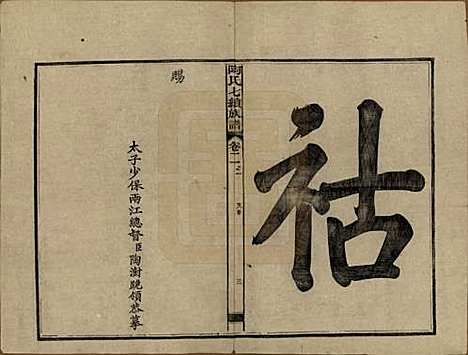 祜
陶氏七續族譜
卷二之一
三
賜
太子少保兩江總督臣陶澍跪領恭摹